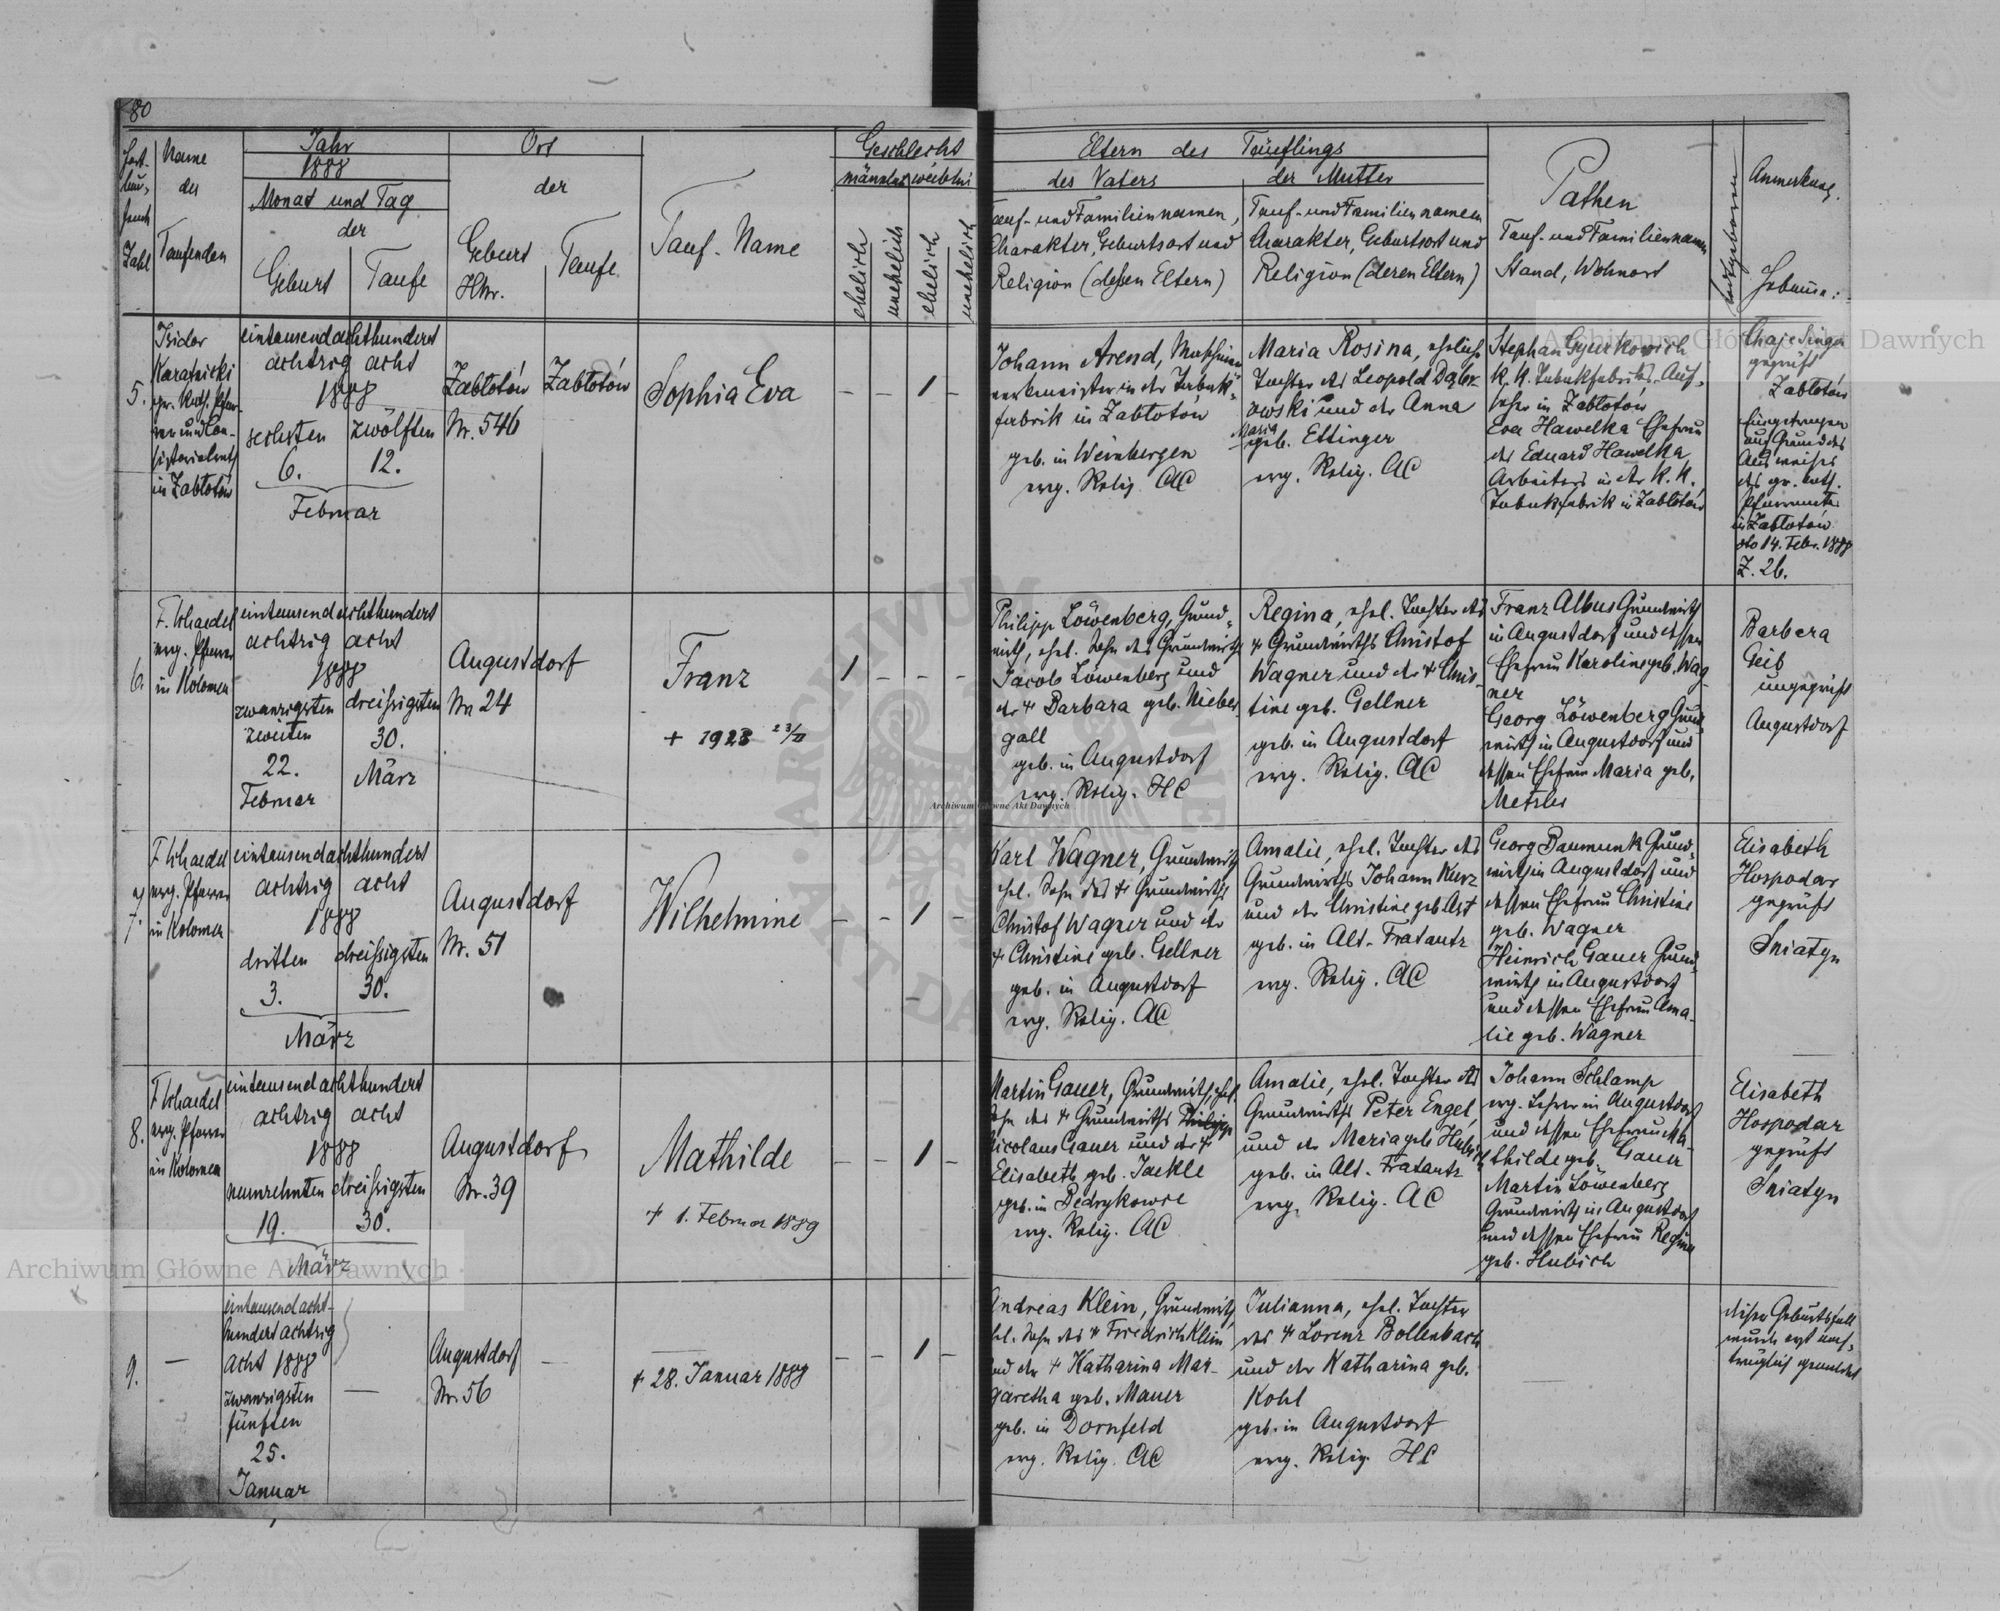 80
Fort-
lau-
fende
Zahl
Name
des
Taufenden
Jahr
1888
Monat und Tag
der
Geburt
Taufe
Ort
der
Geburt
HNr.
Taufe
Tauf-Name
Geschlecht
männlich
weiblich
ehelich
unehelich
ehelich
unehelich
Eltern des Täuflings
des Vaters
Tauf- und Familiennamen,
Charakter, Geburtsort und
Religion (deßen Eltern)
der Mutter
Tauf- und Familiennamen
Charakter, Geburtsort und
Religion (deren Eltern)
Pathen
Tauf- und Familienname
Stand, Wohnort
todtgeboren
Anmerkung.
Hebamme:
5.
Isidor
gr. Kath. Pfar-
rer und Con-
sistorialrath
in Zabłotów
eintausend achthundert
achtzig acht
1888
sechsten zwölften
6. 12.
Februar
Zabłotów
Nr. 546
Zabłotów
Sophia Eva
- - 1 -
Johann Arend, Maschinen
werkmeister in der Tabak-
fabrik in Zabłotów
geb. in Weinbergen
evg. Relig. AC
Maria Rosina, eheliche
Tochter des Leopold Dąbr-
owski und der Anna
Maria
geb. Ettinger
evg. Relig. AC
Stephan Gyurkovich
K. K. Tabakfabriks-Auf-
seher in Zabłotów
Eva Hawelka Ehefrau
des Eduard Hawelka
Arbeiters in der K. K.
Tabakfabrik in Zabłotów
Chaje Singer
geprüft
Zabłotów
Eingetragen
auf Grund des
Ausweises
des gr. kath.
Pfarramtes
in Zabłotów
dto 14. Febr. 1888
Z. 26.
6.
evg. Pfarrer
in Kolomea
eintausend achthundert
achtzig acht
1888
zwanzigsten dreißigsten
zweiten 30.
22. März
Februar
Augustdorf
Nr. 24
Franz
+ 1923 23/II
1 - - -
Philipp Löwenberg, Grund-
wirth, ehel. Sohn des Grundwirths
Jacob Löwenberg und
der + Barbara geb. Nieber-
gall
geb. in Augustdorf
evg. Relig. HC
Regina, ehel. Tochter des
+ Grundwirths Christof
Wagner und der + Chris-
tine geb. Gellner
geb. in Augustdorf
evg. Relig. AC
Franz Albus Grundwirth
in Augustdorf und dessen
Ehefrau Karoline geb. Wag-
ner
Georg Löwenberg Grund-
wirth in Augustdorf und
dessen Ehefrau Maria geb.
Metzler
Barbera
Geib
ungeprüft
Augustdorf
7.
evg. Pfarrer
in Kolomea
eintausend achthundert
achtzig acht
1888
dritten dreißigsten
3. 30.
März
Augustdorf
Nr. 51
Wilhelmine
- - 1 -
Karl Wagner, Grundwirth
ehel. Sohn des + Grundwirths
Christof Wagner und der
+ Christine geb. Gellner
geb. in Augustdorf
evg. Relig. AC
Amalie, ehel. Tochter des
Grundwirths Johann Kurz
und der Christine geb. Ast
geb. in Alt-Fratautz
evg. Relig. AC
Georg Baumunk Grund-
wirth in Augustdorf und
dessen Ehefrau Christine
geb. Wagner
Heinrich Gauer Grund-
wirth in Augustdorf
und dessen Ehefrau Ama-
lie geb. Wagner
Elisabeth
Hospodar
geprüft
Sniatyn
8.
evg. Pfarrer
in Kolomea
eintausend achthundert
achtzig acht
1888
neunzehnten dreißigsten
19. 30.
März
Augustdorf
Nr. 39
Mathilde
+ 1. Februar 1889
- - 1 -
Martin Gauer, Grundwirth, ehel.
Sohn des + Grundwirths Philipp
Nicolaus Gauer und der +
Elisabeth geb. Jaekle
geb. in Bedrykowce
evg. Relig. AC
Amalie, ehel. Tochter des
Grundwirths Peter Engel
und der Maria geb. Hubich
geb. in Alt-Fratautz
evg. Relig. AC
Johann Schlamp
evg. Lehrer in Augustdorf
und dessen Ehefrau Ma-
thilde geb. Gauer
Martin Löwenberg
Grundwirth in Augustdorf
und dessen Ehefrau Regina
geb. Hubich
Elisabeth
Hospodar
geprüft
Sniatyn
9.
-
eintausend acht-
hundert achtzig
acht 1888
zwanzigsten
fünften
25.
Januar
Augustdorf
Nr. 56
+ 28. Januar 1888
- - 1 -
Andreas Klein, Grundwirth,
ehel. Sohn des + Friedrich Klein
und der + Katharina Mar-
garetha geb. Mauer
geb. in Dornfeld
evg. Relig. AC
Julianna, ehel. Tochter
des + Lorenz Bollenbach
und der Katharina geb.
Kohl
geb. in Augustdorf
evg. Relig. HC
dieser Geburtsfall
wurde erst nach-
träglich gemeldet
Archiwum Główne Akt Dawnych
Archiwum Główne Akt Dawnych
Archiwum Główne Akt Dawnych